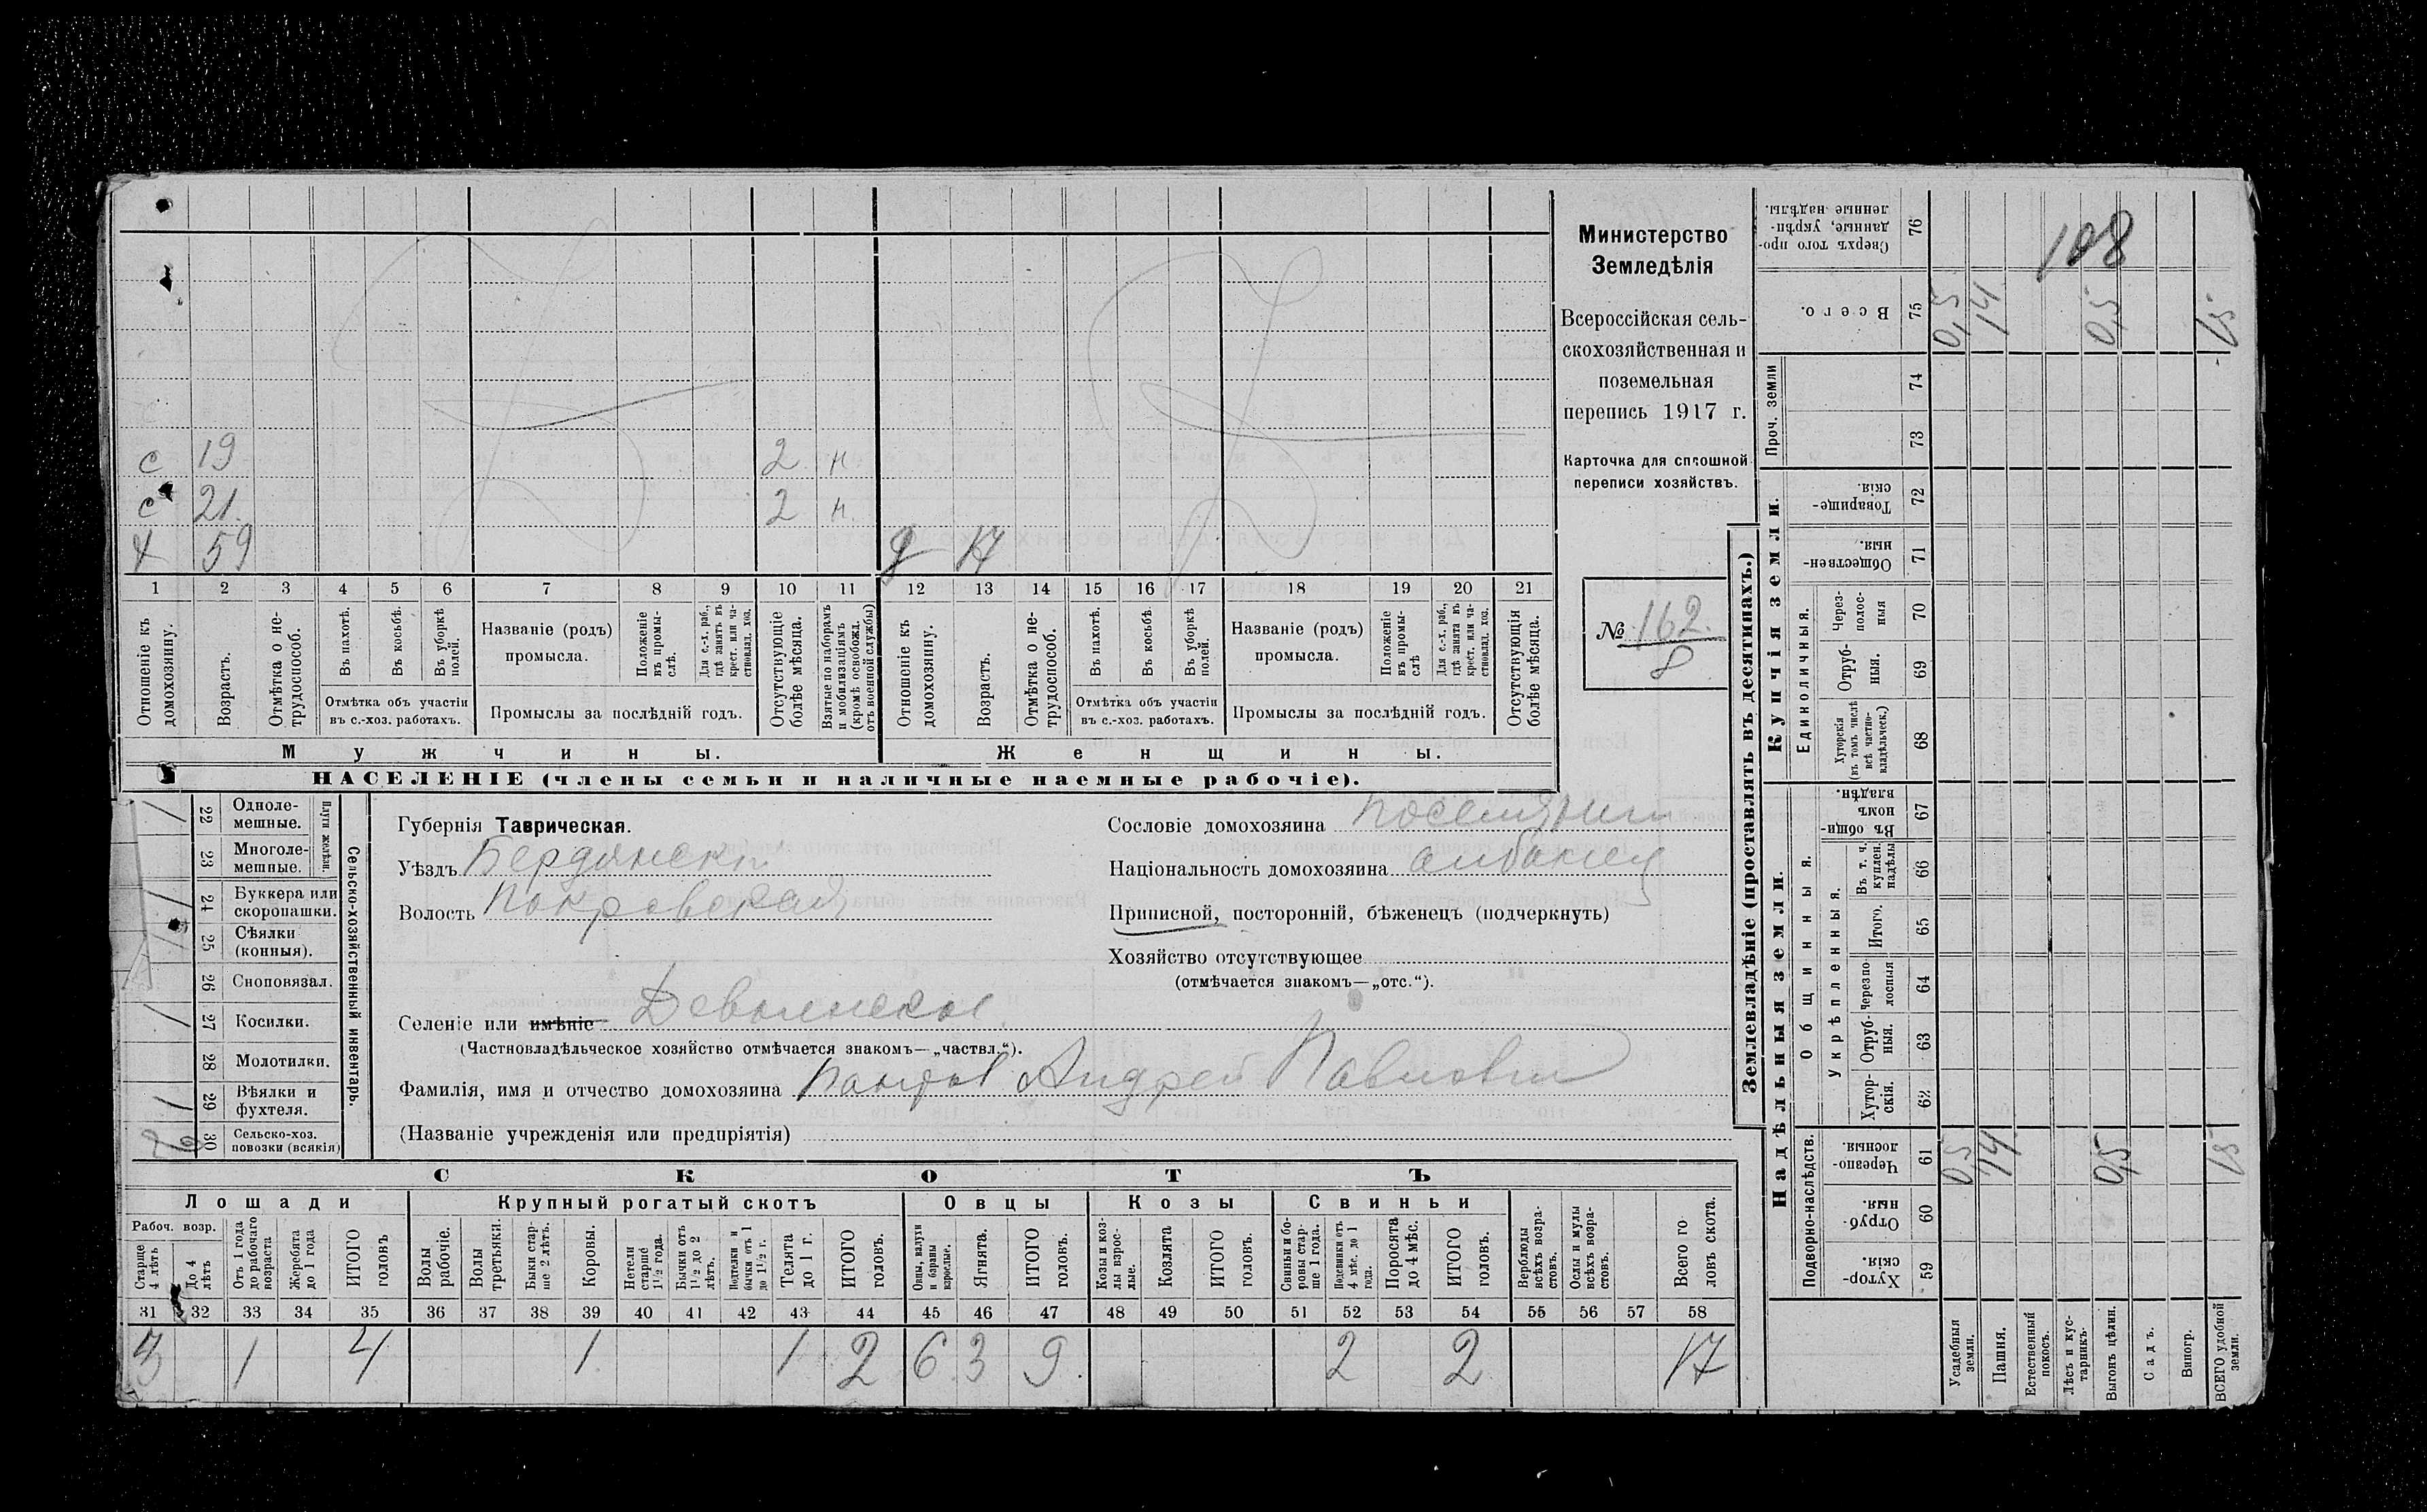 с 19 2 н
с 21. 2 н.
х 59 д 17
1 2 3 4 5 6 7 8 9 10 11 12 13 14 15 16 17 18 19 20 21
Отношеніе къ домохозяину.
Возрастъ.
Отмѣтка о не-трудоспособ.
Въ пахотѣ.
Въ косьбѣ.
Въ уборкѣ полей.
Отмѣтка объ участіи
въ с.-хоз. работахъ.
Названіе (родъ)
промысла.
Положеніе въ промы-слѣ.
Для с.-х. раб., гдѣ занятъ въ крест. или ча-стновлад. хоз.
Промыслы за послѣдній годъ.
Отсутствующіе болѣе мѣсяца.
Взятые по наборамъ и мобилизаціямъ (кромѣ освобожд. отъ военной службы)
Отношеніе къ домохозяину.
Возрастъ.
Отмѣтка о не-трудоспособ.
Въ пахотѣ.
Въ косьбѣ.
Въ уборкѣ полей.
Отмѣтка объ участіи
въ с.-хоз. работахъ.
Названіе (родъ)
промысла.
Положеніе въ промы-слѣ
Для с.-х. раб., гдѣ занята въ крест. или ча-стновлад. хоз.
Промыслы за послѣдній годъ.
Отсутствующія болѣе мѣсяца.
Мужчины. Женщины.
НАСЕЛЕНІЕ (члены семьи и наличные наемные рабочіе).
Министерство
Земледѣлія
Всероссійская сель-
скохозяйственная и
поземельная
перепись 1917 г.
Карточка для сплошной
переписи хозяйствъ.
№ 162.
8
Сельско-хозяйственный инвентарь.
Плуги желѣзн.
22 Одноле-мешные.
23 Многоле-мешные.
24 Буккера или скоропашки.
25 Сѣялки (конныя).
26 Сноповязал.
27 Косилки.
28 Молотилки.
29 Вѣялки и фухтеля.
30 Сельско-хоз. повозки (всякія)
Губернія Таврическая.
Уѣздъ Бердянскій
Волость Покровская
Селеніе или имѣніе Девнинское.
(Частновладѣльческое хозяйство отмѣчается знакомъ—„частвл.“).
Фамилія, имя и отчество домохозяина Андрей Павловъ
(Названіе учрежденія или предпріятія)
Сословіе домохозяина поселянин
Національность домохозяина албанец
Приписной, посторонній, бѣженецъ (подчеркнуть)
Хозяйство отсутствующее
(отмѣчается знакомъ—„отс.“).
СКОТЪ
Лошади Крупный рогатый скотъ Овцы Козы Свиньи
Рабоч. возр.
Старше 4 лѣтъ
До 4 лѣтъ
Отъ 1 года до рабочаго возраста
Жеребята до 1 года
ИТОГО головъ
Волы рабочіе.
Волы третьяки.
Быки стар-ше 2 лѣтъ.
Коровы.
Нетели старше 1½ года.
Бычки отъ 1½ до 2 лѣтъ.
Подтелки и бычки отъ 1 до 1½ г.
Телята до 1 г.
ИТОГО головъ.
Овцы, валухи и бараны взрослые.
Ягнята.
ИТОГО головъ.
Козы и коз-лы взрос-лые.
Козлята
ИТОГО головъ.
Свиньи и бо-ровы стар-ше 1 года.
Подсвинки отъ 4 мѣс. до 1 года.
Поросята до 4 мѣс.
ИТОГО головъ.
Верблюды всѣхъ возра-стовъ.
Ослы и мулы всѣхъ возра-стовъ.
Всего го-ловъ скота.
31 32 33 34 35 36 37 38 39 40 41 42 43 44 45 46 47 48 49 50 51 52 53 54 55 56 57 58
3 1 4 1 1 2 6 3 9. 2 2 17
Землевладѣніе (проставлять въ десятинахъ.)
108
Сверхъ того про-данные, укрѣп-ленные надѣлы. 76
Всего. 75 0,5 14 0,5 15
Проч. земли
74
73
Купчія земли.
Товарище-скія. 72
Обществен-ныя. 71
Единоличныя.
Через-полос-ныя 70
Отруб-ныя. 69
Хуторскія (въ томъ числѣ всѣ частно-владѣльческ.) 68
Надѣльныя земли.
Общинныя.
Въ общи-номъ владѣн. 67
Укрѣпленныя.
Въ т. ч. куплен. надѣлы 66
Итого. 65
Черезпо-лосныя 64
Отруб-ныя. 63
Хутор-скія. 62
Подворно-наслѣдств.
Черезпо-лосныя. 61 0,5 14 0,5 15
Отруб-ныя. 60
Хутор-скія. 59
Усадебныя земли.
Пашня.
Естественный покосъ.
Лѣсъ и кус-тарникъ.
Выгонъ цѣлин.
Садъ.
Виногр.
ВСЕГО удобной земли.